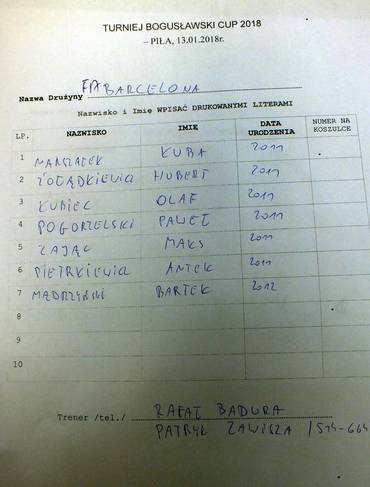 TURNIEJ BOGUSŁAWSKI CUP 2018
– PIŁA, 13.01.2018r.
Nazwa Drużyny FA BARCELONA
Nazwisko i Imię WPISAĆ DRUKOWANYMI LITERAMI
LP. NAZWISKO IMIĘ DATA URODZENIA NUMER NA KOSZULCE
1 MARSZAŁEK KUBA 2011
2 ŻOŁĄDKIEWICZ HUBERT 2011
3 KUBIEC OLAF 2011
4 POGORZELSKI PAWEŁ 2011
5 ZAJĄC MAKS 2011
6 PIETRKIEWICZ ANTEK 2011
7 MĄDRZYŃSKI BARTEK 2012
8
9
10
Trener /tel./ RAFAŁ BADURA
PATRYK ZAWISZA / 514-664